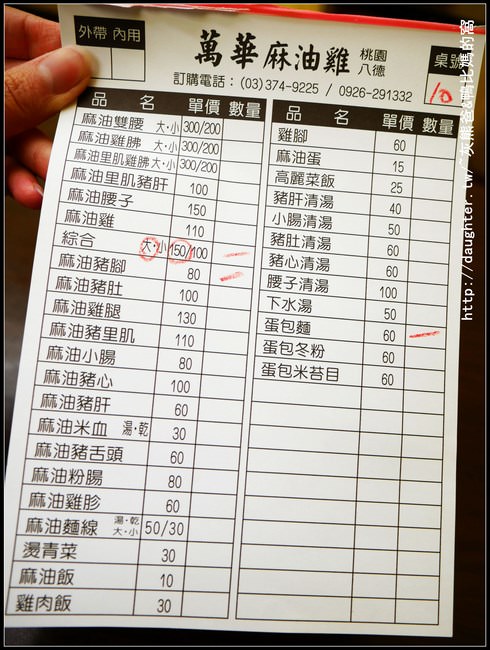 外帶 內用
萬華麻油雞 桃園 八德
桌號
10
訂購電話：(03)374-9225 / 0926-291332
品 名 單價 數量
麻油雙腰 大·小 300/200
麻油雞腓 大·小 300/200
麻油里肌雞腓 大·小 300/200
麻油里肌豬肝 100
麻油腰子 150
麻油雞 110
綜合 大·小 150/100
麻油豬腳 80
麻油豬肚 100
麻油雞腿 130
麻油豬里肌 110
麻油小腸 80
麻油豬心 100
麻油豬肝 60
麻油米血 湯·乾 30
麻油豬舌頭 60
麻油粉腸 80
麻油雞胗 60
麻油麵線 湯·乾 大·小 50/30
燙青菜 30
麻油飯 10
雞肉飯 30
品 名 單價 數量
雞腳 60
麻油蛋 15
高麗菜飯 25
豬肝清湯 40
小腸清湯 50
豬肚清湯 60
豬心清湯 60
腰子清湯 100
下水湯 50
蛋包麵 60
蛋包冬粉 60
蛋包米苔目 60
http://daughter.tw/~灰熊爸&鴨比媽的窩